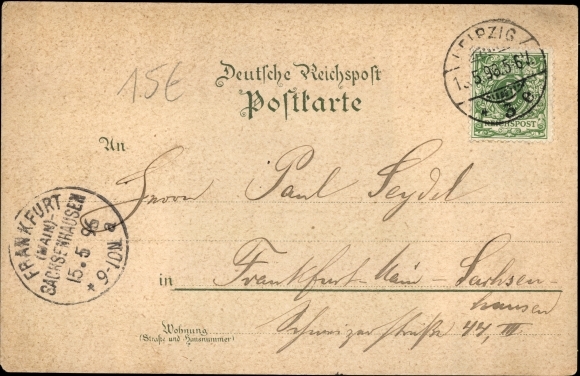 LEIPZIG
5.96.5-6N.
* 3 e
REICHSPOST
15€
Deutsche Reichspost
Postkarte
An
Herrn Paul Seydel
FRANKFURT
(MAIN)-
SACHSENHAUSEN
15.5 96
* 9-10N a
in Frankfurt Main-Sachsen-
hausen
Wohnung
(Straße und Hausnummer)
Schweizerstraße 44, III.